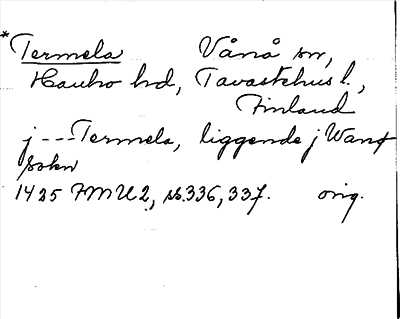 * Termela Vånå sn,
Hauho hd, Tavastehus l.,
Finland
j --- Termela, liggende j Wanø
sokn
1435 FMU 2, ss. 336, 337. orig.